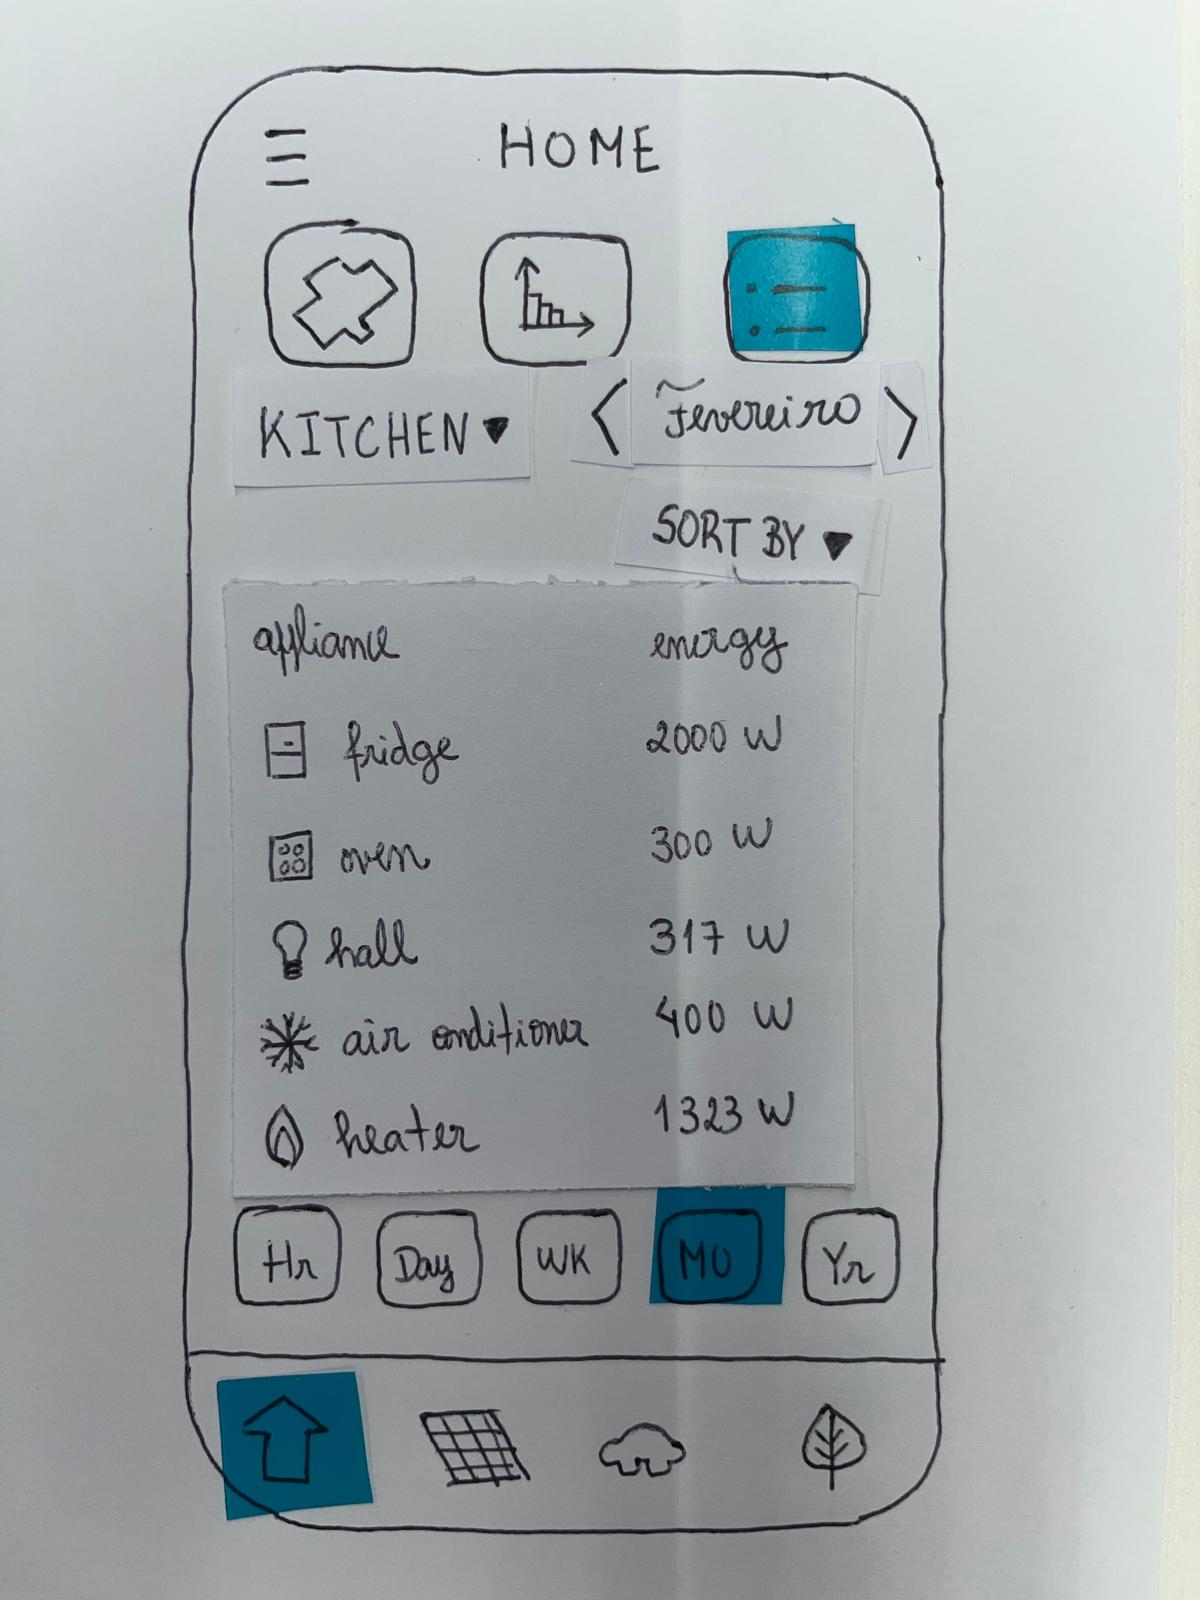 HOME
KITCHEN ▾ < Fevereiro >
SORT BY ▾
appliance energy
fridge 2000 W
oven 300 W
hall 317 W
air conditioner 400 W
heater 1323 W
Hr Day WK MO Yr